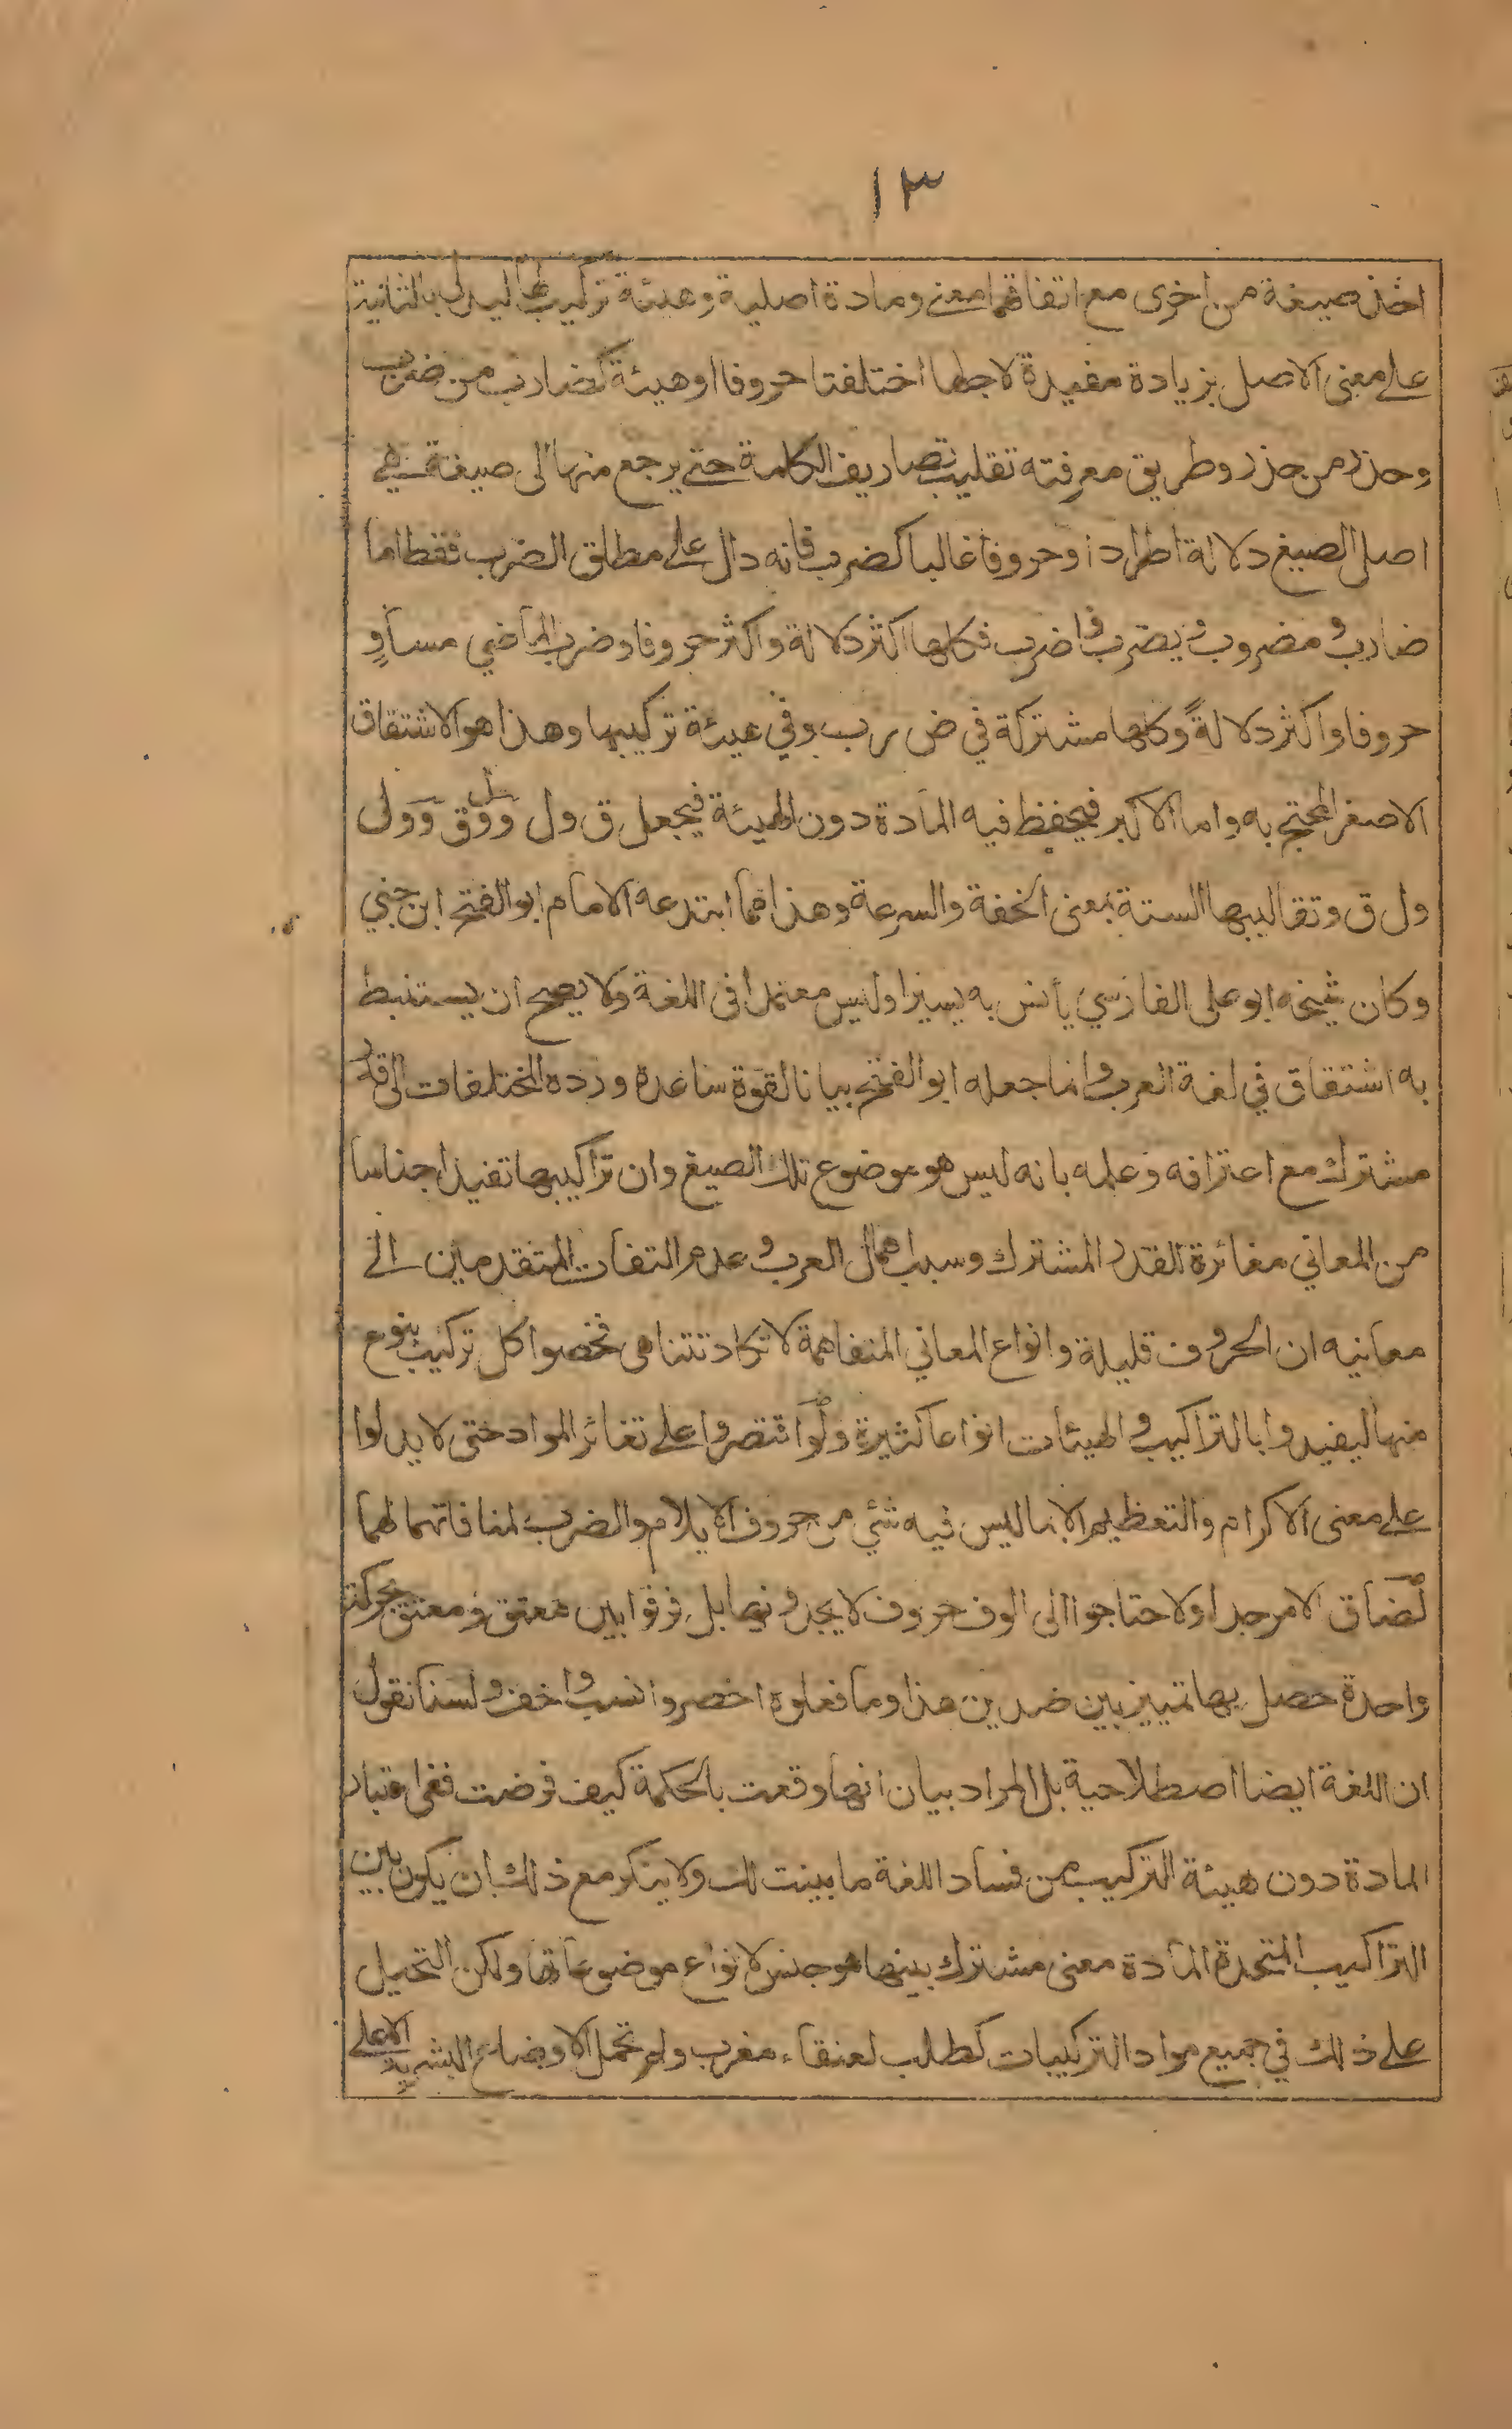 ١٣
اخذ صيغة من اخرى مع اتفاقهما معنے ومادة اصلية وهيئة تركيب لها ليدل بالثانية
علے معنى الاصل بزيادة مفيدة لاجلها اختلفتا حروفا او هيئة كضارب من ضرب
وحذر من حذر وطريق معرفته تقليب تصاريف الكلمة حتے يرجع منها الى صيغة هے
اصل الصيغ دلالة اطرادا وحروفا غالبا كضرب فانه دال علے مطلق الضرب فقط اما
ضارب ومضروب ويضرب واضرب فكلها اكثر دلالة واكثر حروفا وضرب الماضي مساوٍ
حروفا واكثر دلالةً وكلها مشتركة في ض ر ب وفي هيئة تركيبها وهذا هو الاشتقاق
الاصغر المحتج به واما الاكبر فيحفظ فيه المادة دون الهيئة فيجعل ق ول وول ق وول
ول ق وتقاليبها الستة بمعنى الخفة والسرعة وهذا مما ابتدعه الامام ابو الفتح ابن جني
وكان شيخه ابو على الفارسي يأنس به يسيرا وليس معتمدا في اللغة ولا يصح ان يستنبط
به اشتقاق في لغة العرب وانما جعله ابو الفتح بيانا لقوة ساعده ورده المختلفات الى قدر
مشترك مع اعترافه وعلمه بانه ليس هو موضوع تلك الصيغ وان تراكيبها تفيد اجناسا
من المعاني مغائرة للقدر المشترك وسبب اهمال العرب وعدم التفات المتقدمين الے
معانيه ان الحروف قليلة وانواع المعاني المتفاهمة لا تكاد تتناهى فخصوا كل تركيب بنوع
منها ليفيدوا بالتراكيب والهيئات انواعا كثيرة ولو اقتصروا علے تغائر المواد حتى لا يدلوا
علے معنى الاكرام والتعظيم الا بما ليس فيه شئي من حروف الايلام والضرب لمنافاتهما لهما
لضاق الامر جدا ولاحتاجوا الى الوف حروف لا يجدونها بل فرقوا بين معتق ومعتق بحركة
واحدة حصل بها تمييز بين ضدين هذا وما فعلوه اخصر وانسب واخف ولسنا نقول
ان اللغة ايضا اصطلاحية بل المراد بيان انها وقعت بالحكمة كيف فرضت ففى اعتبار
المادة دون هيئة التركيب من فساد اللغة ما بينت لك ولا ينكر مع ذلك ان يكون بين
التراكيب المتحدة المادة معنى مشترك بينها هو جنس لانواع موضوعاتها ولكن التحيل
علے ذلك في جميع مواد التركيبات كطلب لعنقاء مغرب ولم تحمل الاوضاع البشرية الا علے